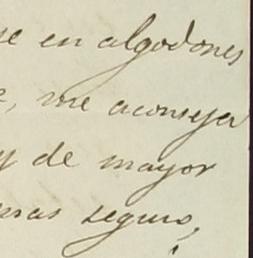 se en algodones
e, me aconseja
y de mayor
mas seguro,